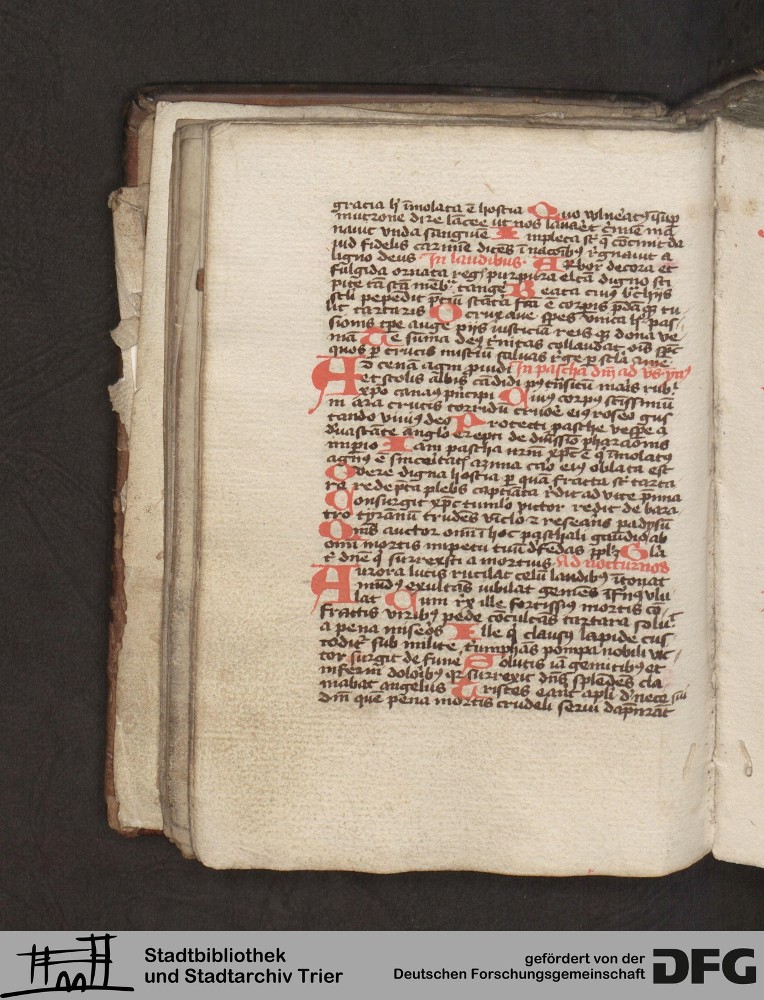 gracia h̄ ī̄molata ē hostia Quo vulneatꝰ īsup
mucrone dire lācee ut nos lavaret crimīe mā
navit vnda sanguīe Impleta sūt q̄ cōcinit da
uid fidelis carmīe dicēs ī nacoībꝰ rēgnavit a
ligno deus In laudibus. Arbor decora et
fulgida ornata regꝭ purpura electa digno sti
pite tā scā mēbra tange Beata cuiꝰ brachijs
scli pepedit p̄ciū statēa fca ē corpis p̄dāqꝫ tu
lit tartaris O crux ave spes vnica h̄ pas
sionis tpe auge pijs iusticiā reisqꝫ dona ve
niā Te sūma deꝰ trinitas collaudat oīs spc̄
quos p̄ crucis misteiū salvas rege p̄ scla amē
AD cenam agni p̄uidi In pascha dn̄i ad vs. ymꝰ
et stolis albis cādidi pꝰ trāsitū maris rubri
xpo̅ canamꝰ principi Cuiꝰ corpꝰ sctissimū
in ara crucis torridū cruore eiꝰ roseo gus
tando viuīꝰ deo Protecti pasche vespe a
devastāte anglo erepti de durissīo pharaonis
imperio Iam pascha nr̄m xpc̄ ē q̄ īmolatꝰ
agnꝰ ē sinceitatꝭ azima caro eiꝰ oblata est
O vere digna hostia p̄ quā fracta sūt tarta
ra redēpta plebs captiuata reddit ad vite p̄mia
Consurgit xpc̄ tumulo victor redit de bara
tro tyrannū trudēs vīclo ⁊ reserans padysū
Qm̄s auctor omīū ī hoc paschali gaudio ab
omī mortis impetu tuū defēdas pplꝫ Glā
t̄ dn̄e q̄ surrexisti a mortuis Ad nocturnos
Aurora lucis rutilat celū laudibꝰ ītonat
mūdꝰ exultans iubilat gemēs īfernꝰ vlu
lat Cum rex ille fortissīꝰ mortis cō
fractis viribꝰ pede cōculcas tartara soluit
a pena miseros Ille q̄ clausꝰ lapide cus
toditꝰ sub milite, triumphās pompa nobili vic
tor surgit de funere Solutis iā gemitibꝰ et
inferni doloibꝰ qꝛ surrexit dn̄s splēdēs cla
mabat angelus Tristes erant apl̄i de nece sui
dn̄i quē pena mortis crudeli servi dāpnarāt
Stadtbibliothek
und Stadtarchiv Trier
gefördert von der
Deutschen Forschungsgemeinschaft
DFG